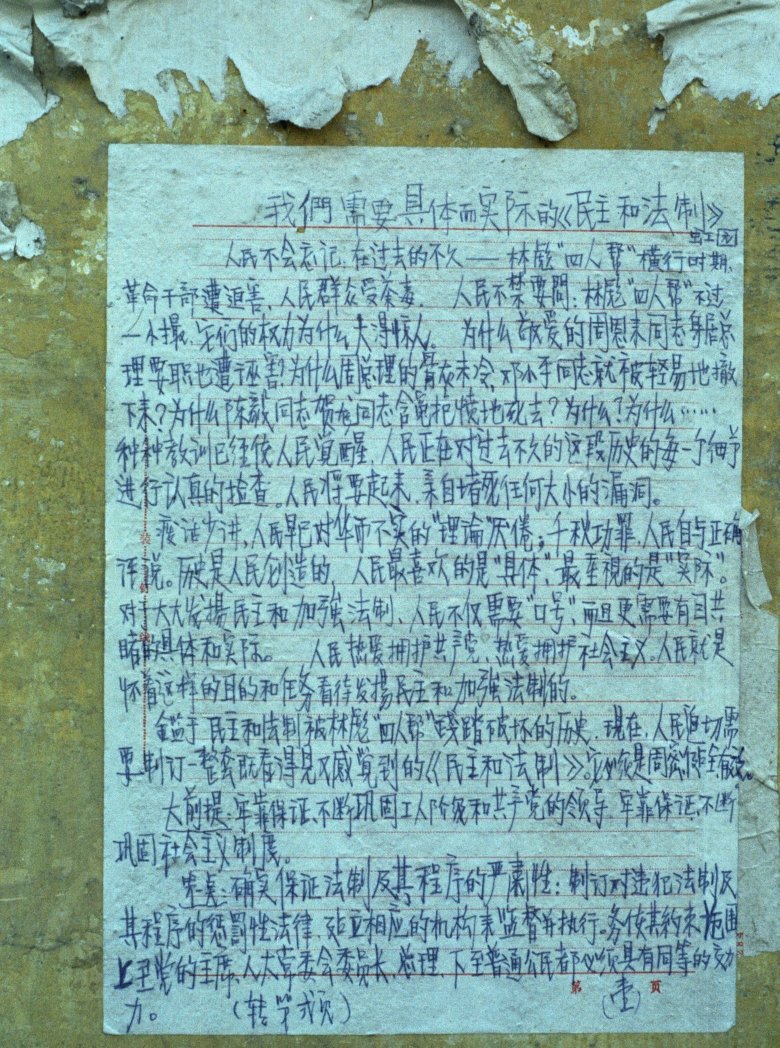 我們需要具体而实际的《民主和法制》
人民不会忘记,在过去的不久——林彪"四人帮"橫行时期,
革命干部遭迫害,人民群众受荼毒。人民不禁要問:林彪"四人帮"不过
一小撮,它们的权力为什么大得惊人。为什么敬爱的周恩来同志身居总
理要职也遭诬害?为什么周总理的骨灰未冷,邓小平同志就被轻易地撤
下来?为什么陈毅同志贺龙同志含冤抱愤地死去?为什么?为什么……
种种教训已经使人民觉醒,人民正在对过去不久的这段历史的每一个细节
进行认真的检查。人民将要起来,亲自堵死任何大小的漏洞。
人民早已对华而不实的"理论"厌倦;千秋功罪,人民自与正确
评说。历史是人民创造的,人民最喜欢的是"具体",最重視的是"实际"。
对于大大发揚民主和加強法制,人民不仅需要"口号",而且更需要有目共
睹的具体和实际。人民热爱拥护共产党,热爱拥护社会主义。人民就是
怀着这样的目的和任务看待发揚民主和加強法制的。
鉴于民主和法制被林彪"四人帮"践踏破坏的历史,现在,人民迫切需
要制订一整套既看得見又感觉到的《民主和法制》。它必须是周密健全有效。
大前提:牢靠保证、不断巩固工人阶级和共产党的领导,牢靠保证、不断
巩固社会主义制度。
第一是:确实保证法制及其程序的严肃性:制订对违犯法制及
其程序的惩罚性法律,建立相应的机构来监督并执行。务使其約束范围
上至党的主席、人大常委会委员长、总理,下至普通公民都必须具有同等的效
力。(转第弍页)
第(壹)页